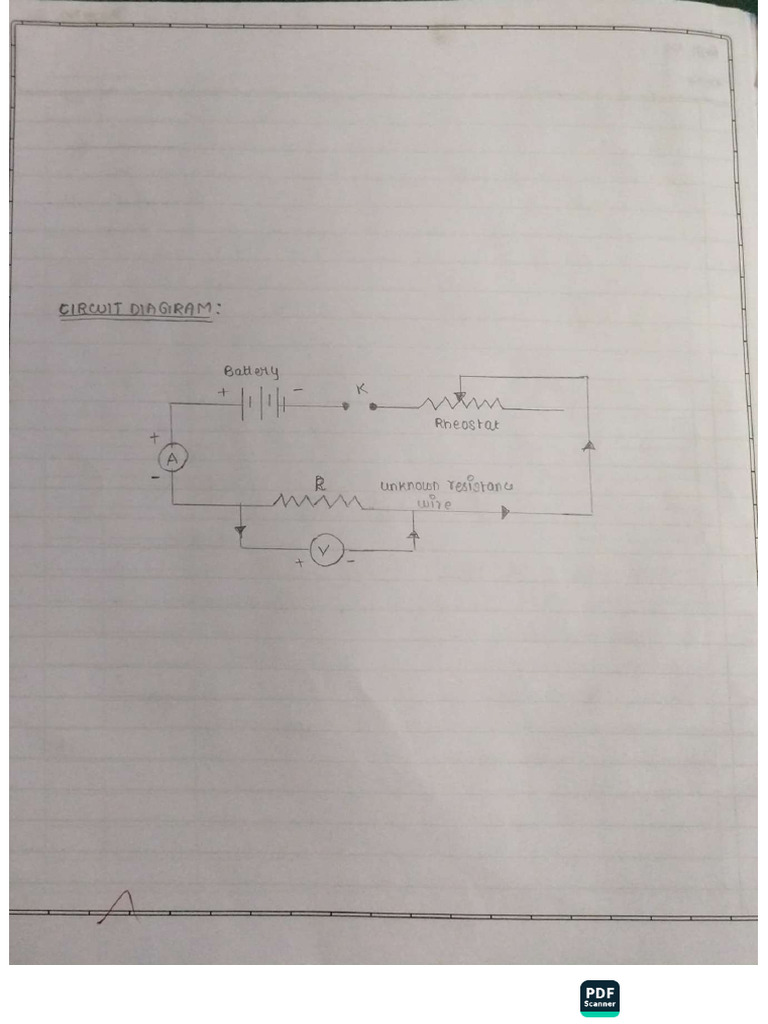 CIRCUIT DIAGRAM:
Battery
+ - K
Rheostat
+
A
-
R unknown resistance
wire
V
+ -
PDF
Scanner